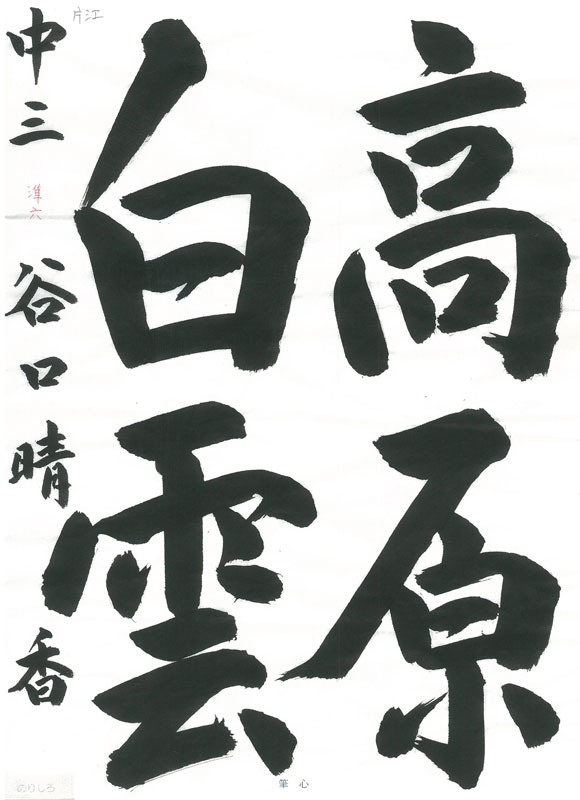 高原
白雲
中三 谷口晴香
片江
準六
のりしろ
筆心